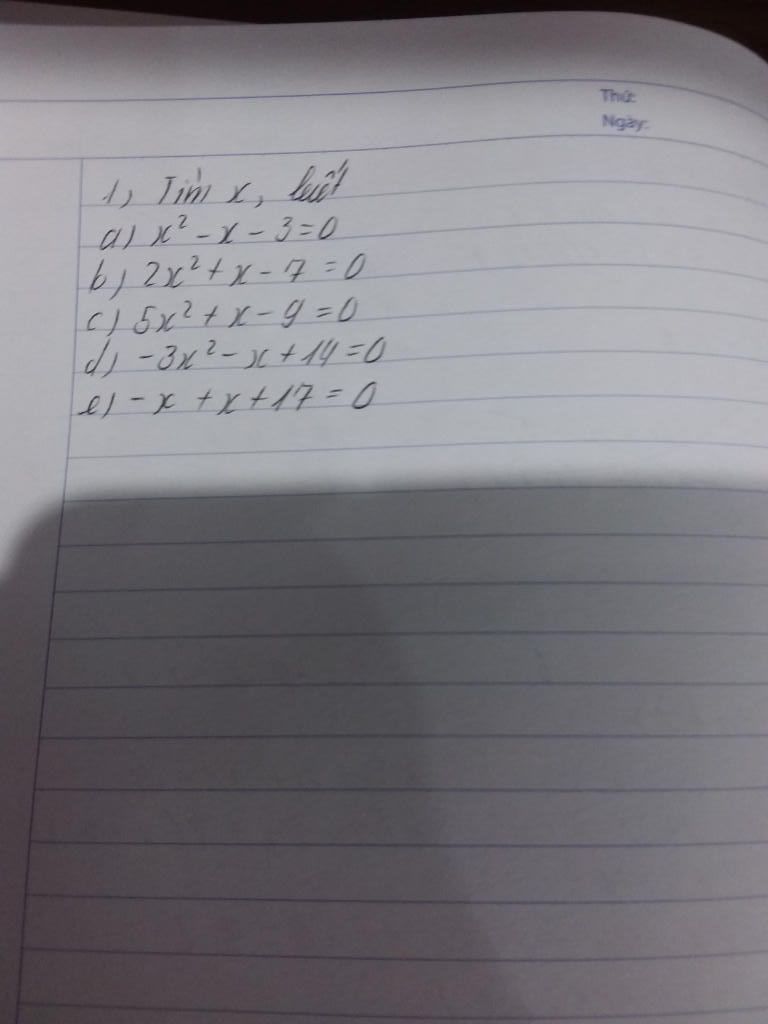 Thứ:
Ngày:
1, Tìm x, biết
a) x² - x - 3 = 0
b) 2x² + x - 7 = 0
c) 5x² + x - 9 = 0
d) -3x² - x + 14 = 0
e) - x + x + 17 = 0